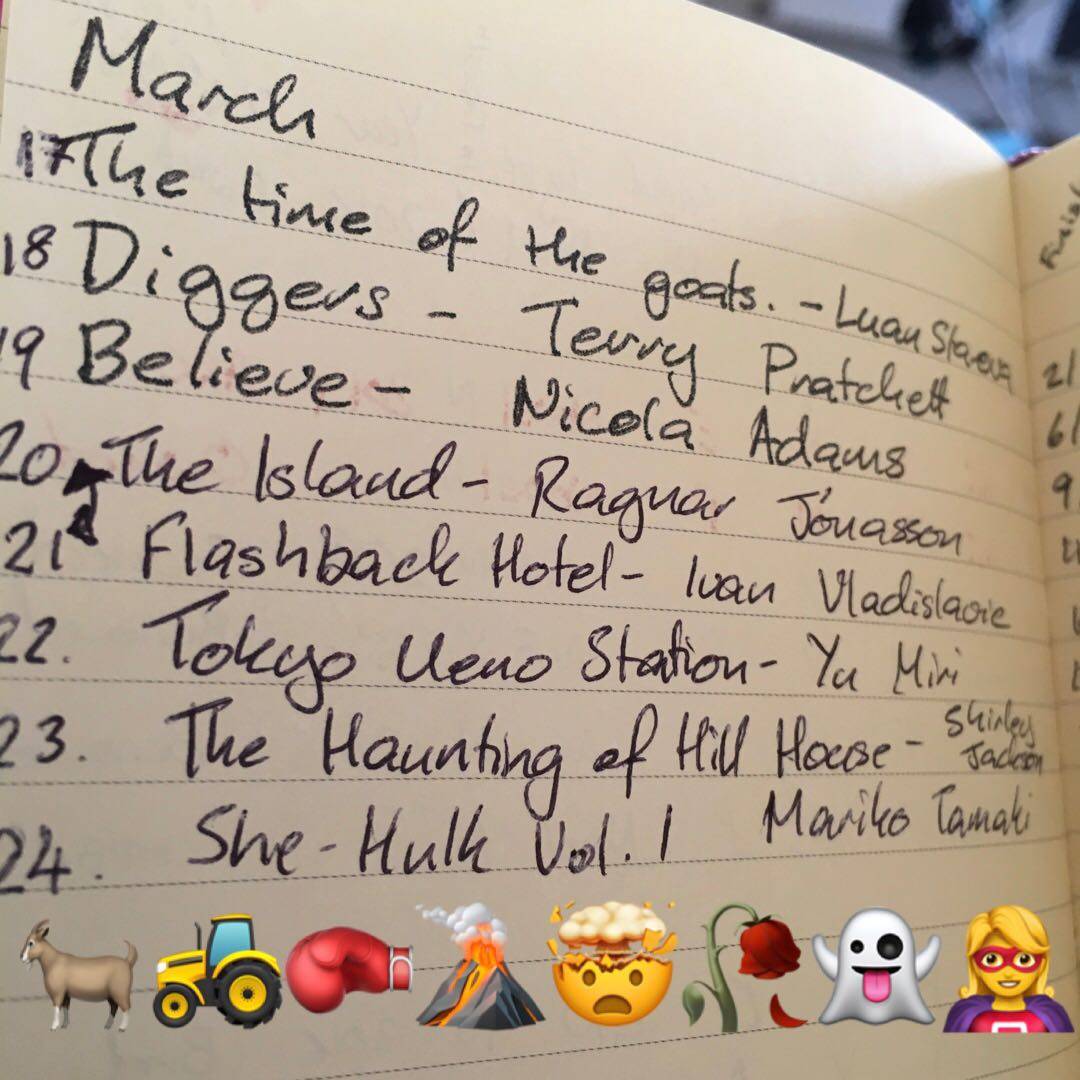 March
17 The time of the goats. - Luan Starova
18 Diggers - Terry Pratchett
19 Believe - Nicola Adams
20 The Island - Ragnar Jónasson
21 Flashback Hotel - Ivan Vladislavic
22. Tokyo Ueno Station - Yu Miri
23. The Haunting of Hill House - Shirley Jackson
24. She-Hulk Vol. 1 Mariko Tamaki
21
6/
9